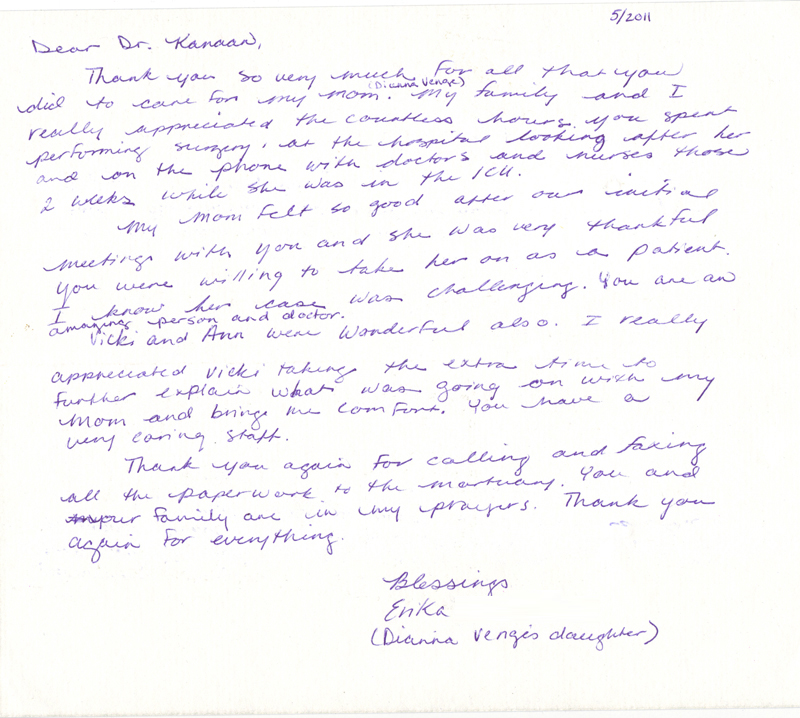 5/2011
Dear Dr. Kanaan,
Thank you so very much for all that you
(Dianna Venge)
did to care for my mom. My family and I
really appreciated the countless hours you spent
performing surgery, at the hospital looking after her
and on the phone with doctors and nurses those
2 weeks while she was in the ICU.
My mom felt so good after our initial
meetings with you and she was very thankful
you were willing to take her on as a patient.
I know her case was challenging. You are an
amazing person and doctor.
Vicki and Ann were wonderful also. I really
appreciated Vicki taking the extra time to
further explain what was going on with my
mom and bring me comfort. You have a
very caring staff.
Thank you again for calling and faxing
all the paperwork to the mortuary. You and
your family are in my prayers. Thank you
again for everything.
Blessings
Erika
(Dianna Venge's daughter)